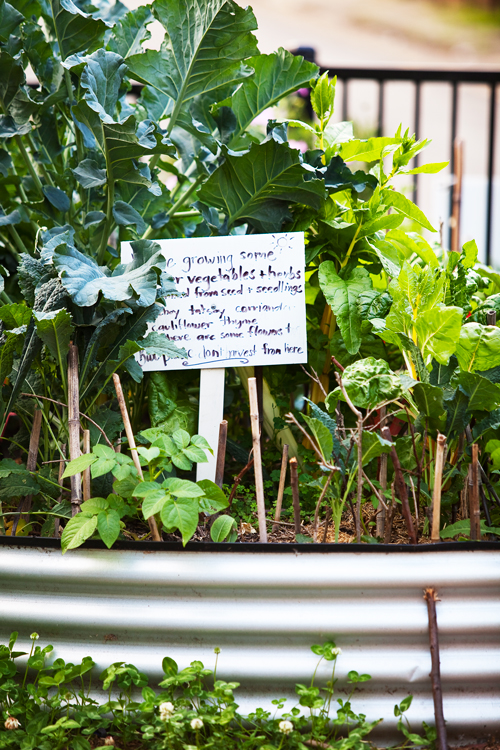 growing some
vegetables + herbs
from seed + seedlings
tatsoy, corriander
cauliflower, thyme
are some flowers +
dont invest from here